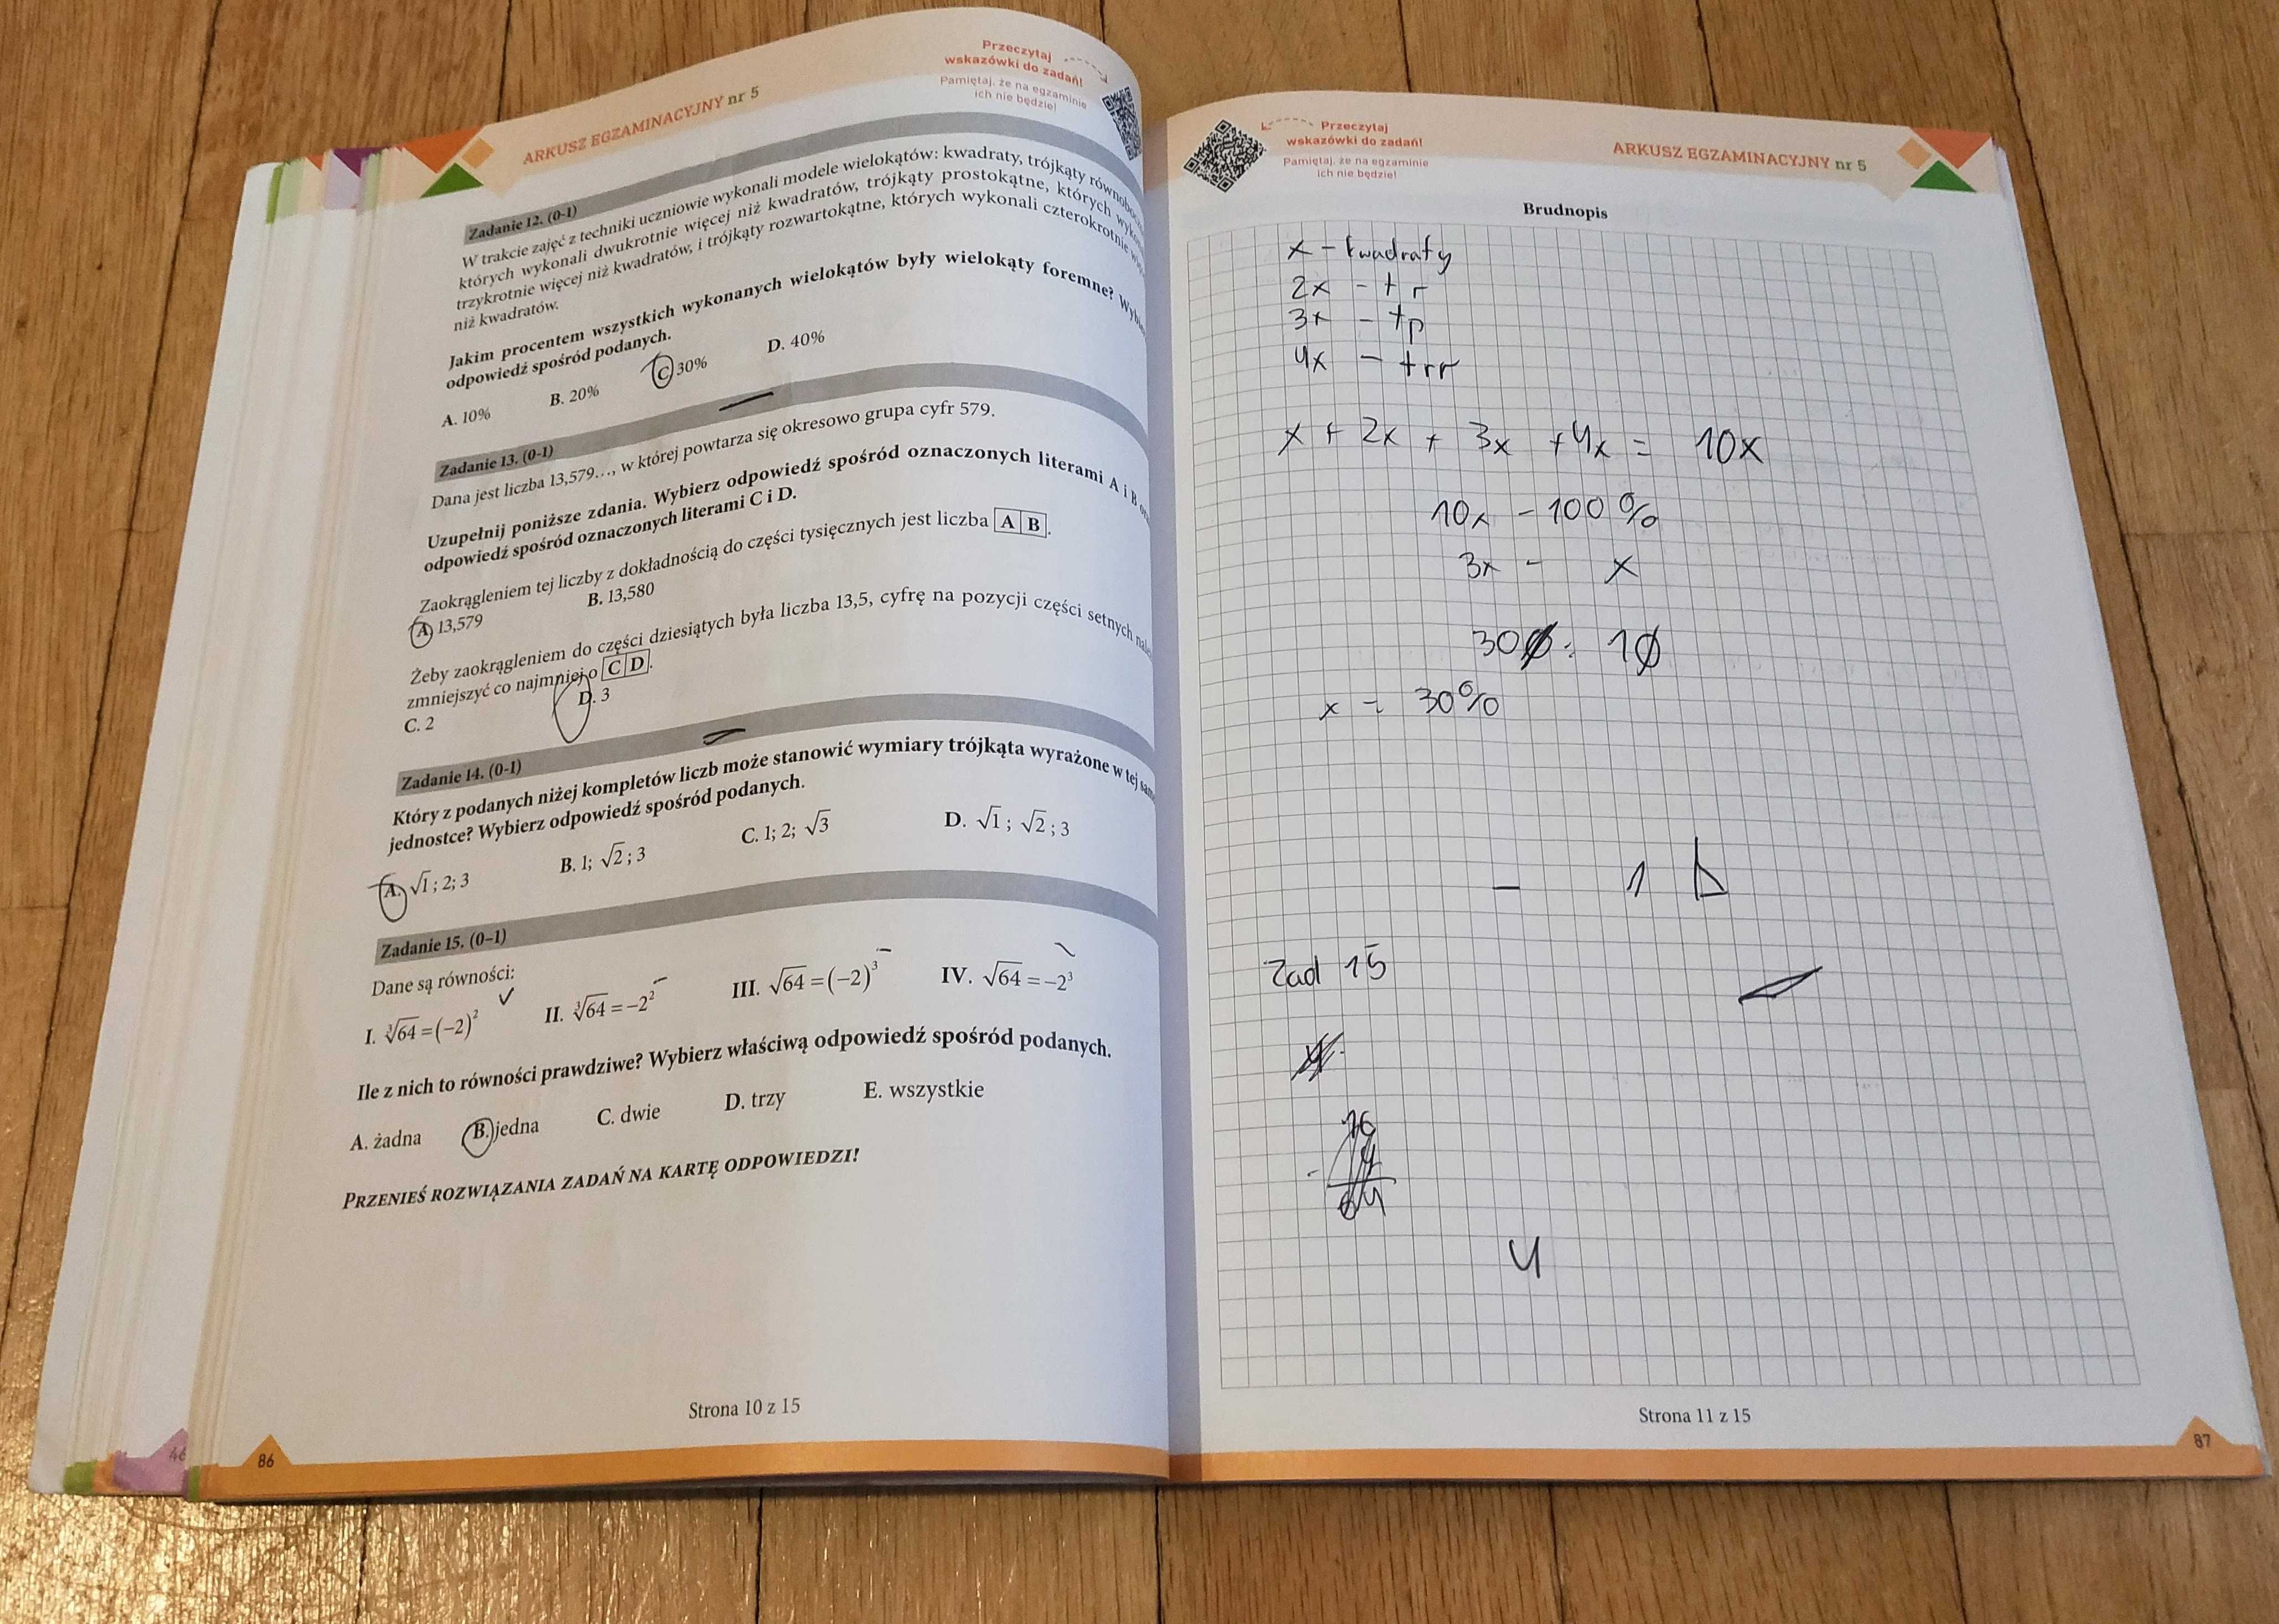 ARKUSZ EGZAMINACYJNY nr 5
Przeczytaj
wskazówki do zadań!
Pamiętaj, że na egzaminie
ich nie będzie!
Zadanie 12. (0-1)
W trakcie zajęć z techniki uczniowie wykonali modele wielokątów: kwadraty, trójkąty
których wykonali dwukrotnie więcej niż kwadratów, trójkąty prostokątne, których
trzykrotnie więcej niż kwadratów, i trójkąty rozwartokątne, których wykonali czterokrotnie
niż kwadratów.
Jakim procentem wszystkich wykonanych wielokątów były wielokąty foremne?
odpowiedź spośród podanych.
A. 10% B. 20% C. 30% D. 40%
Zadanie 13. (0-1)
Dana jest liczba 13,579…, w której powtarza się okresowo grupa cyfr 579.
Uzupełnij poniższe zdania. Wybierz odpowiedź spośród oznaczonych literami A i B
odpowiedź spośród oznaczonych literami C i D.
Zaokrągleniem tej liczby z dokładnością do części tysięcznych jest liczba A B.
A. 13,579 B. 13,580
Żeby zaokrągleniem do części dziesiątych była liczba 13,5, cyfrę na pozycji części setnych
zmniejszyć co najmniej o C D.
C. 2 D. 3
Zadanie 14. (0-1)
Który z podanych niżej kompletów liczb może stanowić wymiary trójkąta wyrażone w tej
jednostce? Wybierz odpowiedź spośród podanych.
A. √1; 2; 3 B. 1; √2; 3 C. 1; 2; √3 D. √1; √2; 3
Zadanie 15. (0–1)
Dane są równości:
I. ∛64 = (−2)² II. ∛64 = −2² III. √64 = (−2)³ IV. √64 = −2³
Ile z nich to równości prawdziwe? Wybierz właściwą odpowiedź spośród podanych.
A. żadna B. jedna C. dwie D. trzy E. wszystkie
PRZENIEŚ ROZWIĄZANIA ZADAŃ NA KARTĘ ODPOWIEDZI!
Strona 10 z 15
86
46
Przeczytaj
wskazówki do zadań!
Pamiętaj, że na egzaminie
ich nie będzie!
ARKUSZ EGZAMINACYJNY nr 5
Brudnopis
x - kwadraty
2x - tr
3x - tp
4x - trr
x + 2x + 3x + 4x = 10x
10x - 100%
3x - x
300 : 10
x = 30%
- 1
Zad 15
16
4
64
4
Strona 11 z 15
87